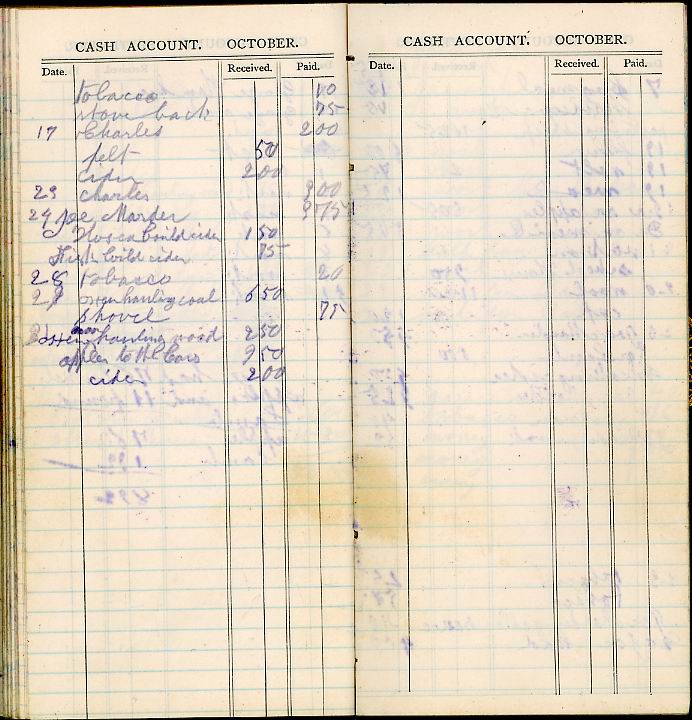 CASH ACCOUNT. OCTOBER.
Date. Received. Paid.
tobacco 10
stove back 75
17 Charles 200
felt 50
cider 200
23 Charles 300
29 Joe Marder 375
cider 150
Hugh Guild cider 75
28 tobacco 20
29 oxen hauling coal 650
shovel 75
31 oxen hauling wood 250
apples to H L Cars 950
cider 200
CASH ACCOUNT. OCTOBER.
Date. Received. Paid.